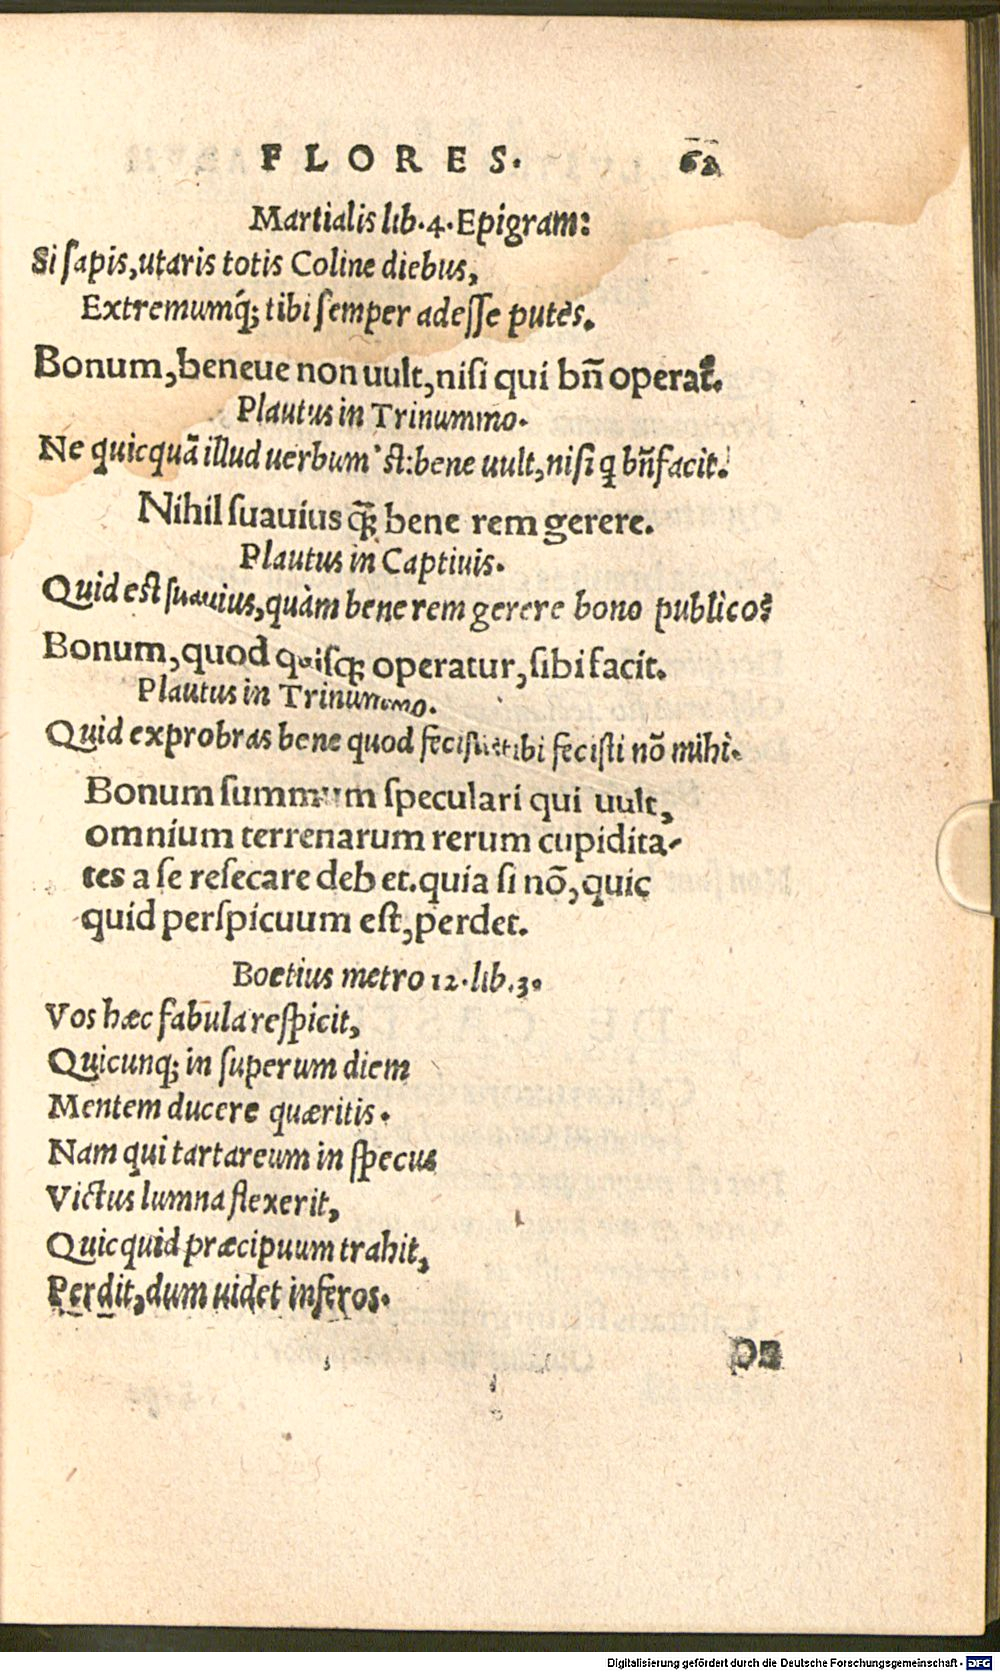 FLORES. 62
Martialis lib.4.Epigram:
Si sapis,utaris totis Coline diebus,
Extremumq́; tibi semper adesse putes.
Bonum,beneue non uult,nisi qui bn̄ operat̃.
Plautus in Trinummo.
Ne quicquã illud uerbum'st:bene uult,nisi q bn̄facit.
Nihil suauius q̃; bene rem gerere.
Plautus in Captiuis.
Quid est suauius,quàm bene rem gerere bono publico?
Bonum,quod quisq; operatur,sibi facit.
Plautus in Trinummo.
Quid exprobras bene quod fecisti:tibi fecisti nõ mihi.
Bonum summum speculari qui uult,
omnium terrenarum rerum cupidita-
tes a se resecare debet.quia si nõ,quic
quid perspicuum est,perdet.
Boetius metro 12.lib.3.
Vos hæc fabula respicit,
Quicunq; in superum diem
Mentem ducere quæritis.
Nam qui tartareum in specus
Victus lumna flexerit,
Quicquid præcipuum trahit,
Perdit,dum uidet inferos.
DE
Digitalisierung gefördert durch die Deutsche Forschungsgemeinschaft - DFG